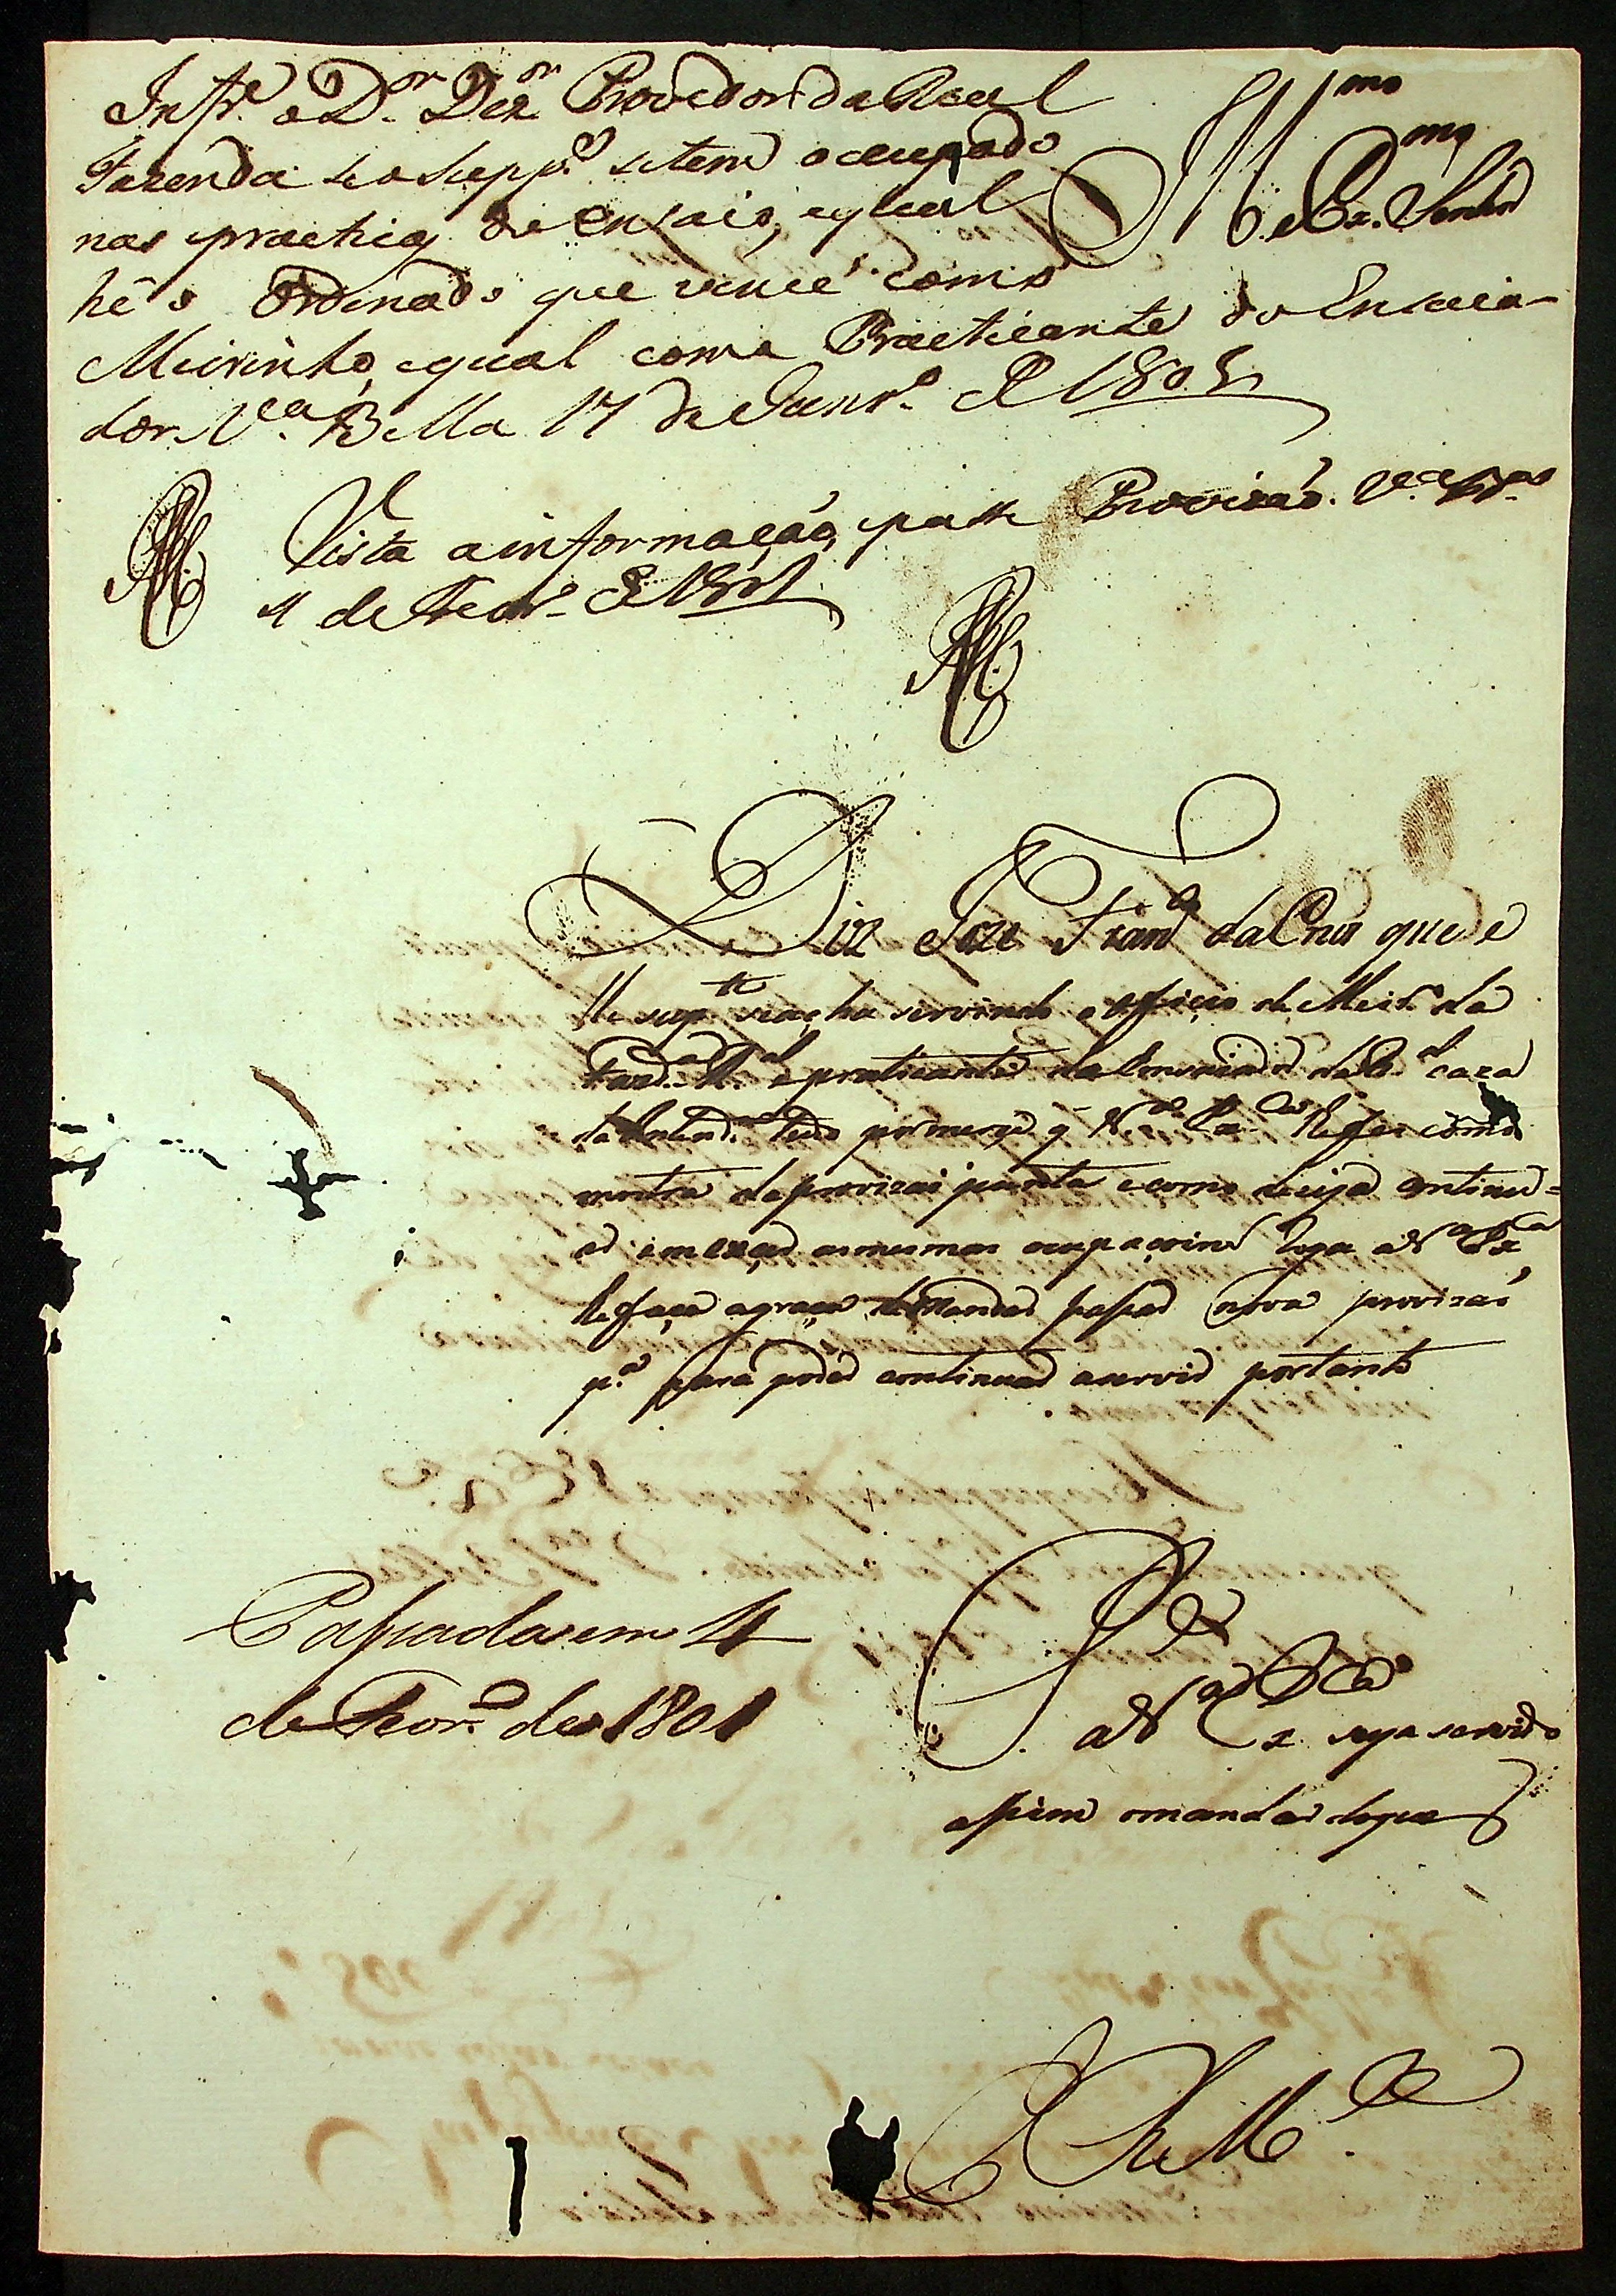 Infr.e o D.or Dez.or Provedor da Real
Fazenda se o Supp.e se tem occupado
nas practicas de ensaio, e qual
hé o Ordenado que vence como
Meirinho, e qual como Practicante do Ensaia-
dor. V.a Bella 17 de Janr.o de 1801
Ill.mo e Ex.mo Senhor
Vista a informação, passe Provizão. V.a
4 de Fevr.o de 1801
Diz Joze Fran.co da Cruz que
elle supp.te se acha servindo o officio de Meir.o da
Fazd.a R.al e praticante da da R.al caza
da Intend.a tudo por merçe q V.a Ex.a lhe fez como
mostra da provizaõ junta e como deseja continu=
ar em as mesmas ocupaçoins Roga a V.a Ex.a
lhe faça a graça mandar passar nova provizaõ
p.a para poder continuar a servir portanto
Passada em 4
de Fevr.o de 1801
P. a V.a Ex.a seja servido
assim o mandar
E R M.ce